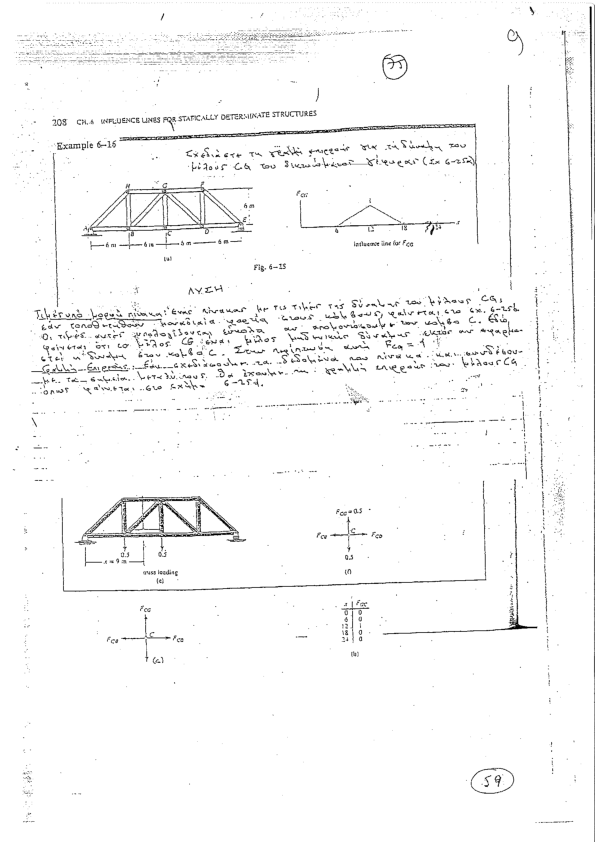 75
9
208 CH. 6 INFLUENCE LINES FOR STATICALLY DETERMINATE STRUCTURES
Example 6–16
Σχεδιάστε τη γραμμή επιρροής για τη δύναμη του
μέλους CG του δικτυώματος γέφυρας (Σχ 6-25α)
H G F
A B C D E
6 m
6 m 6 m 6 m 6 m
(a)
F_CG
1
6 12 18 24 x
influence line for F_CG
Fig. 6–25
ΛΥΣΗ
Τιμές υπό μορφή πίνακα: Ένας πίνακας με τις τιμές της δύναμης του μέλους CG,
εάν τοποθετηθούν μοναδιαία φορτία στους κόμβους, φαίνεται στο σχ. 6-25b
Οι τιμές αυτές υπολογίζονται εύκολα αν απομονώσουμε τον κόμβο C. Εδώ
φαίνεται ότι το μέλος CG είναι μέλος μηδενικής δύναμης εκτός αν εφαρμο-
στεί η δύναμη στον κόμβο C. Στην περίπτωση αυτή F_CG = 1
Γραμμή Επιρροής: Εάν σχεδιάσουμε τα δεδομένα του πίνακα και συνδέσου-
με τα σημεία μεταξύ τους θα έχουμε τη γραμμή επιρροής του μέλους CG
όπως φαίνεται στο σχήμα 6-25d.
0.5 0.5
x = 9 m
truss loading
(e)
F_CG = 0.5
F_CB C F_CD
0.5
(f)
F_CG
F_CB C F_CD
(c)
x F_GC
0 0
6 0
12 1
18 0
24 0
(b)
59